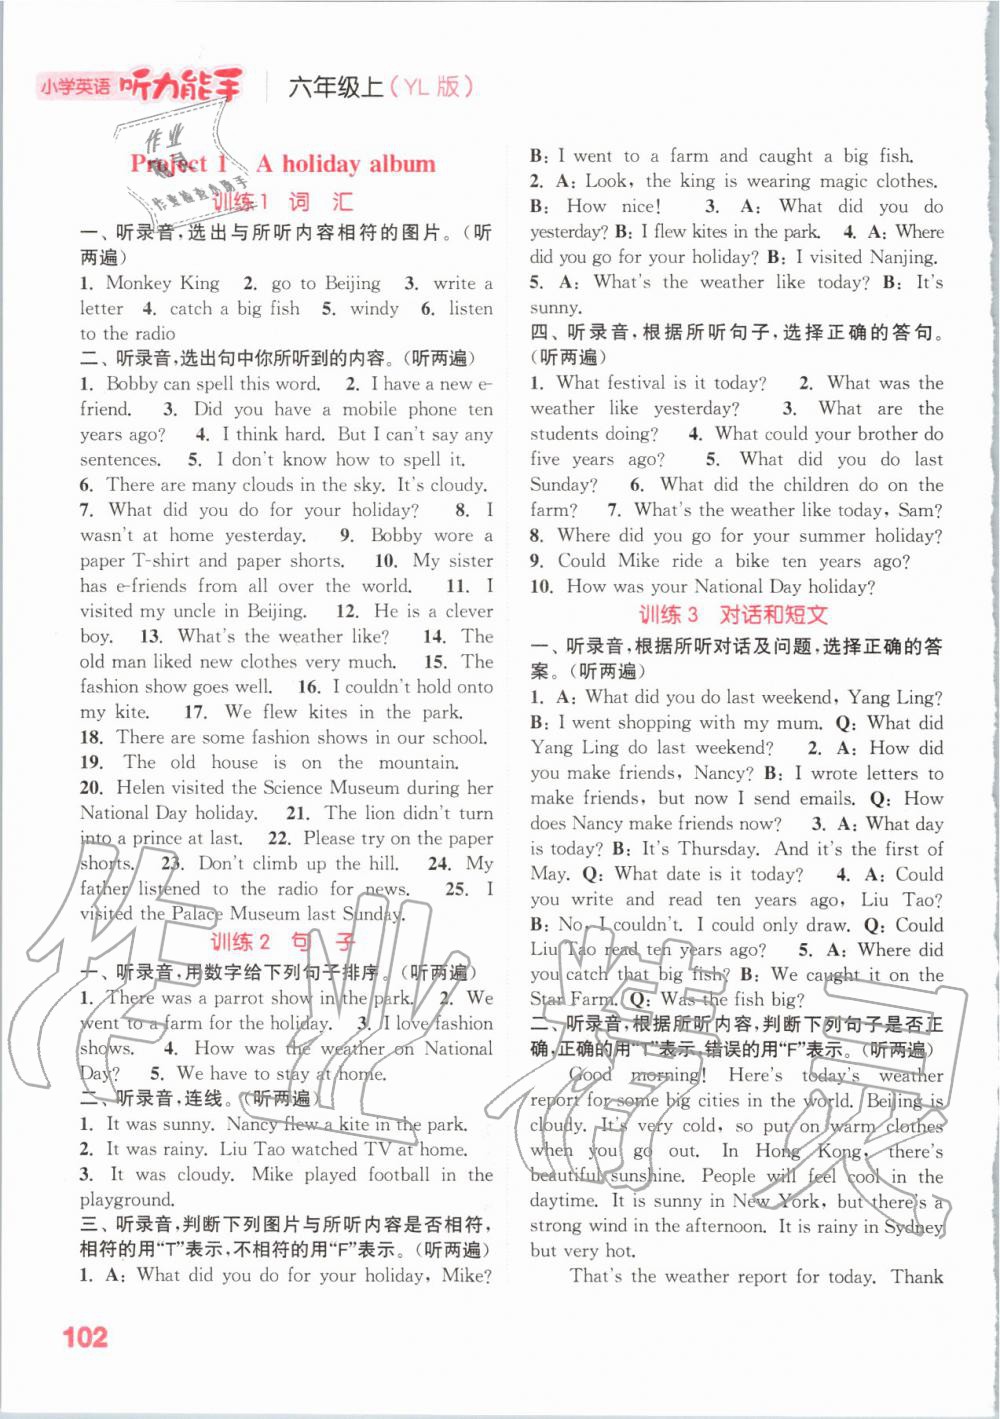 小学英语 听力能手 六年级上(YL版)
Project 1 A holiday album
训练1 词 汇
一、听录音,选出与所听内容相符的图片。(听
两遍)
1. Monkey King 2. go to Beijing 3. write a
letter 4. catch a big fish 5. windy 6. listen
to the radio
二、听录音,选出句中你所听到的内容。(听两遍)
1. Bobby can spell this word. 2. I have a new e-
friend. 3. Did you have a mobile phone ten
years ago? 4. I think hard. But I can't say any
sentences. 5. I don't know how to spell it.
6. There are many clouds in the sky. It's cloudy.
7. What did you do for your holiday? 8. I
wasn't at home yesterday. 9. Bobby wore a
paper T-shirt and paper shorts. 10. My sister
has e-friends from all over the world. 11. I
visited my uncle in Beijing. 12. He is a clever
boy. 13. What's the weather like? 14. The
old man liked new clothes very much. 15. The
fashion show goes well. 16. I couldn't hold onto
my kite. 17. We flew kites in the park.
18. There are some fashion shows in our school.
19. The old house is on the mountain.
20. Helen visited the Science Museum during her
National Day holiday. 21. The lion didn't turn
into a prince at last. 22. Please try on the paper
shorts. 23. Don't climb up the hill. 24. My
father listened to the radio for news. 25. I
visited the Palace Museum last Sunday.
训练2 句 子
一、听录音,用数字给下列句子排序。(听两遍)
1. There was a parrot show in the park. 2. We
went to a farm for the holiday. 3. I love fashion
shows. 4. How was the weather on National
Day? 5. We have to stay at home.
二、听录音,连线。(听两遍)
1. It was sunny. Nancy flew a kite in the park.
2. It was rainy. Liu Tao watched TV at home.
3. It was cloudy. Mike played football in the
playground.
三、听录音,判断下列图片与所听内容是否相符,
相符的用“T”表示,不相符的用“F”表示。(听两遍)
1. A: What did you do for your holiday, Mike?
102
B: I went to a farm and caught a big fish.
2. A: Look, the king is wearing magic clothes.
B: How nice! 3. A: What did you do
yesterday? B: I flew kites in the park. 4. A: Where
did you go for your holiday? B: I visited Nanjing.
5. A: What's the weather like today? B: It's
sunny.
四、听录音,根据所听句子,选择正确的答句。
(听两遍)
1. What festival is it today? 2. What was the
weather like yesterday? 3. What are the
students doing? 4. What could your brother do
five years ago? 5. What did you do last
Sunday? 6. What did the children do on the
farm? 7. What's the weather like today, Sam?
8. Where did you go for your summer holiday?
9. Could Mike ride a bike ten years ago?
10. How was your National Day holiday?
训练3 对话和短文
一、听录音,根据所听对话及问题,选择正确的答
案。(听两遍)
1. A: What did you do last weekend, Yang Ling?
B: I went shopping with my mum. Q: What did
Yang Ling do last weekend? 2. A: How did
you make friends, Nancy? B: I wrote letters to
make friends, but now I send emails. Q: How
does Nancy make friends now? 3. A: What day
is today? B: It's Thursday. And it's the first of
May. Q: What date is it today? 4. A: Could
you write and read ten years ago, Liu Tao?
B: No, I couldn't. I could only draw. Q: Could
Liu Tao read ten years ago? 5. A: Where did
you catch that big fish? B: We caught it on the
Star Farm. Q: Was the fish big?
二、听录音,根据所听内容,判断下列句子是否正
确,正确的用“T”表示,错误的用“F”表示。(听两遍)
Good morning! Here's today's weather
report for some big cities in the world. Beijing is
cloudy. It's very cold, so put on warm clothes
when you go out. In Hong Kong, there's
beautiful sunshine. People will feel cool in the
daytime. It is sunny in New York, but there's a
strong wind in the afternoon. It is rainy in Sydney
but very hot.
That's the weather report for today. Thank
作业精灵